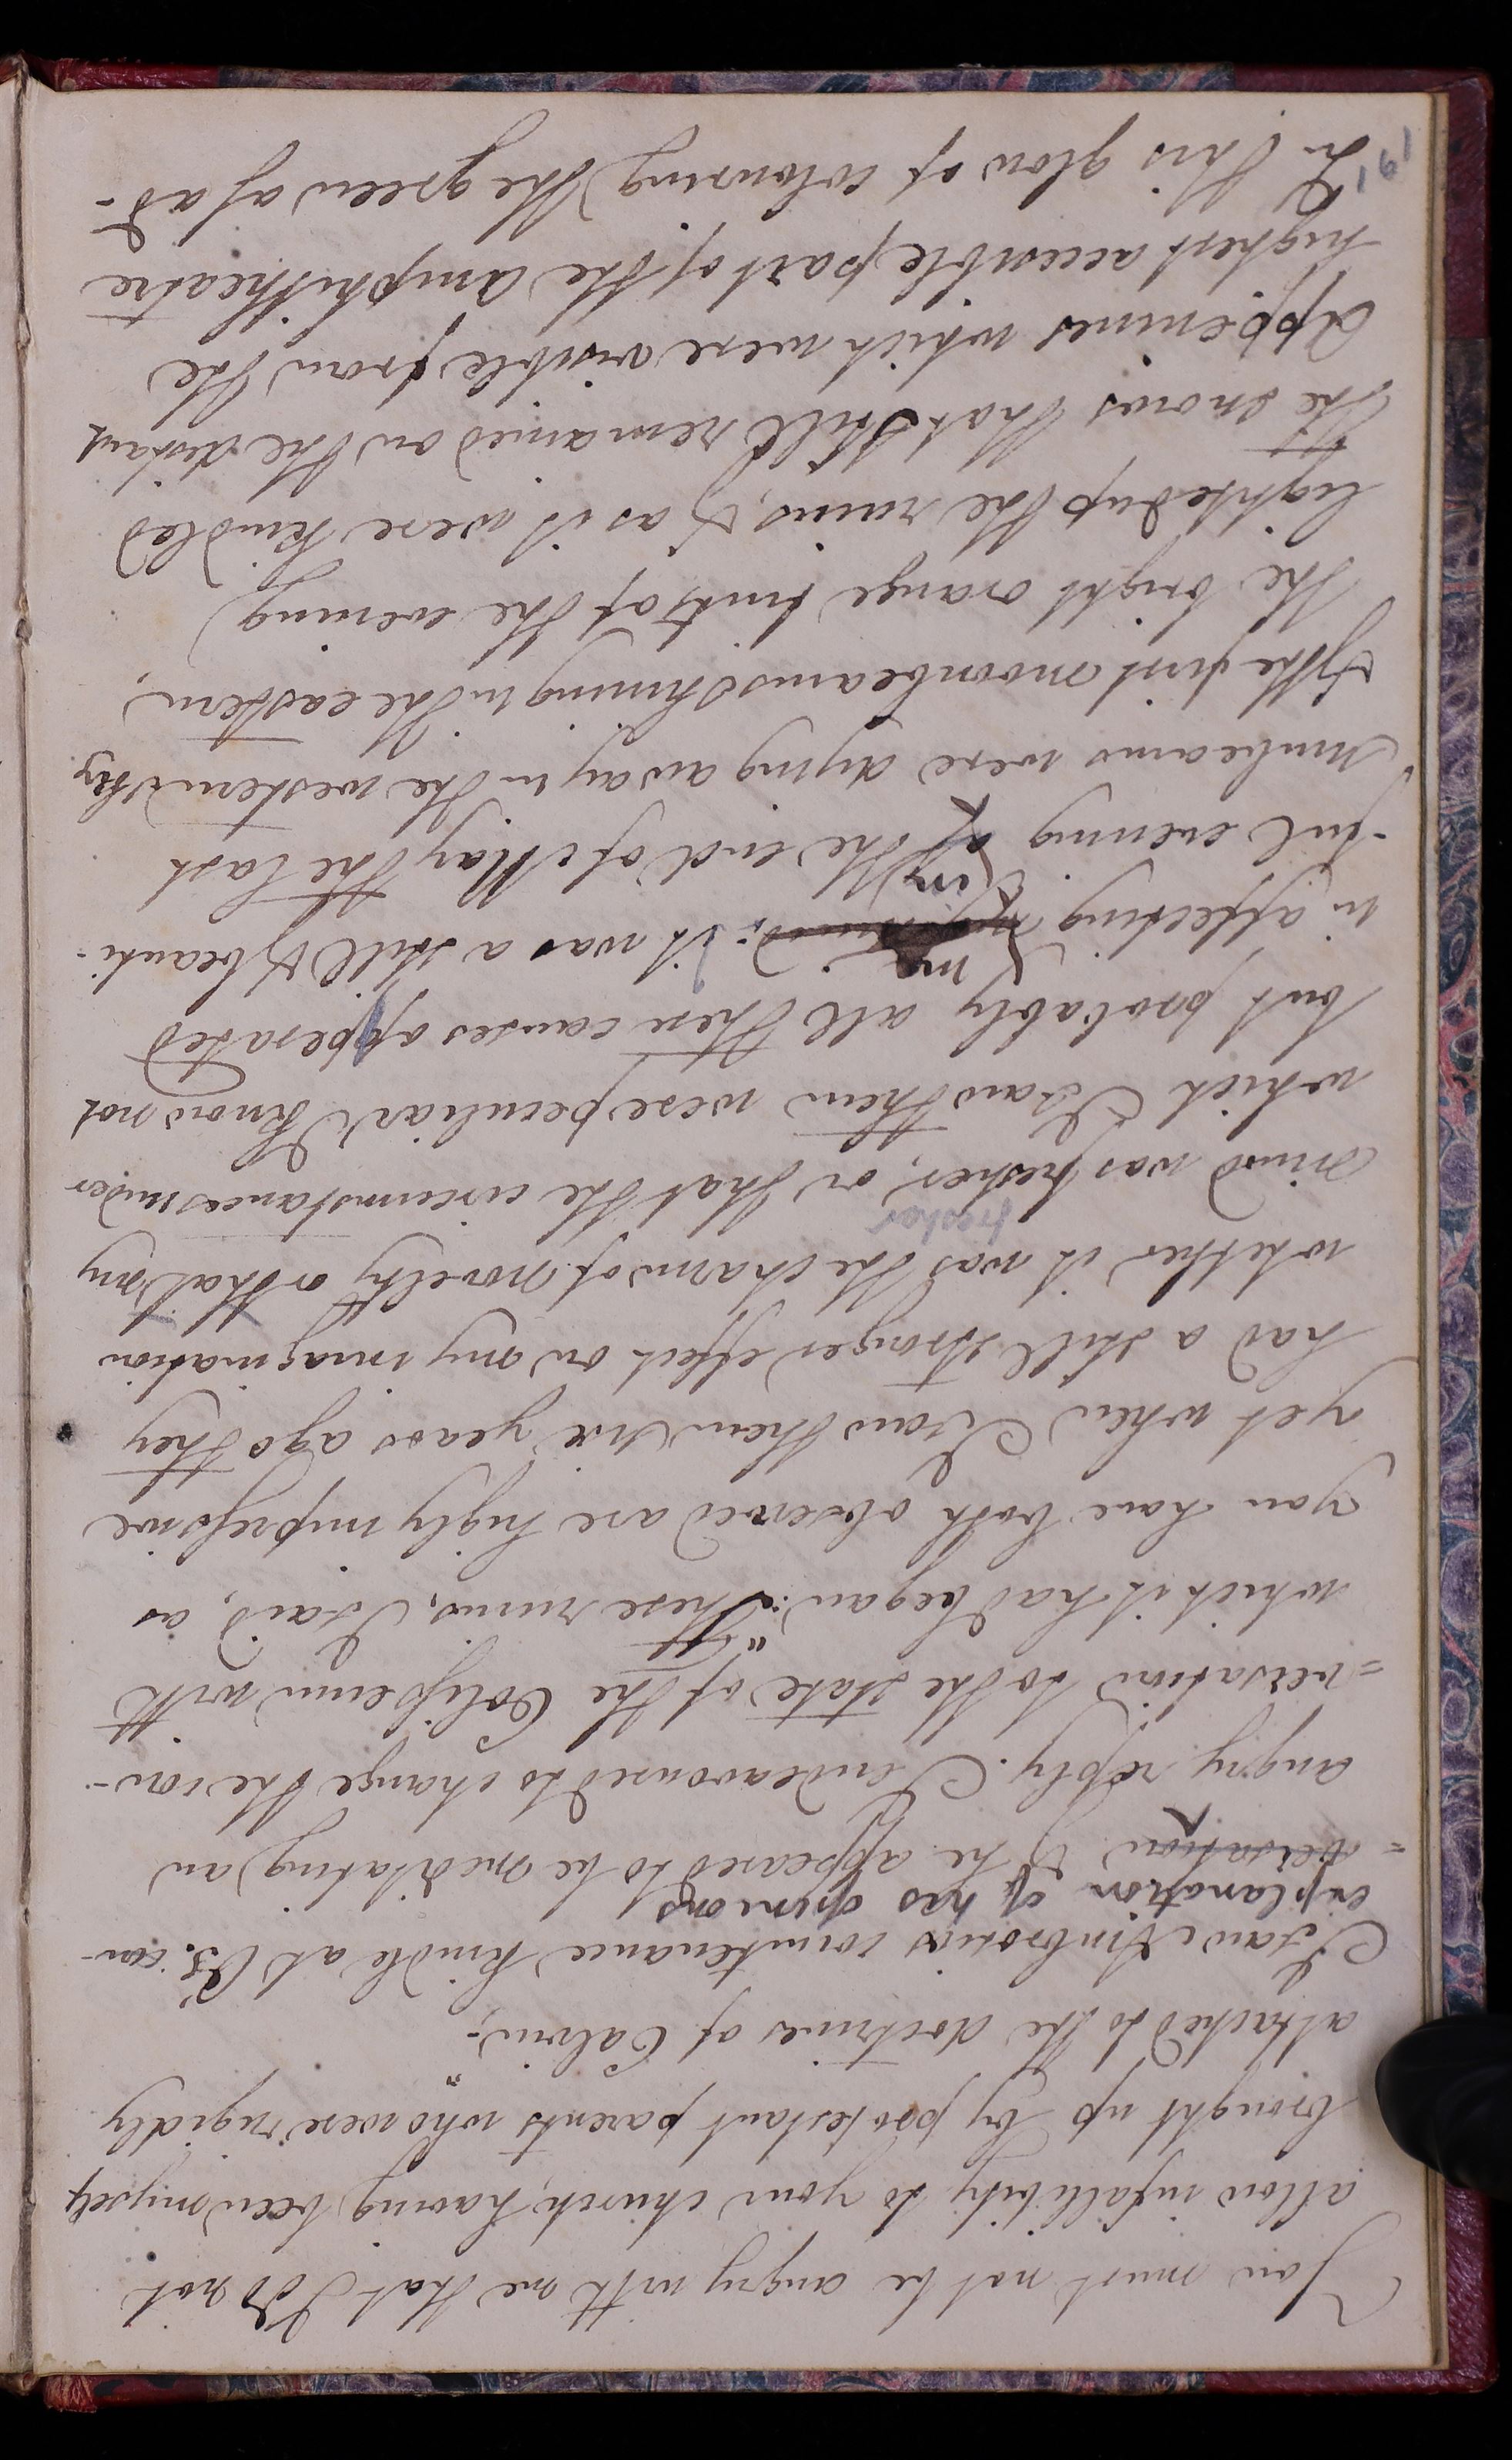 You must not be angry with me that I do not
allow infallibility to your church, having been myself
brought up by protestant parents who were rigidly
attached to the doctrines of Calvin,-"
I saw Ambrosio's countenance kindle at O's. con-
explanation of his opinions
=versation & he appeared to be meditating an
angry reply. I endeavoured to change the con-
=versation to the state of the Colisæum with
which it had began: "These ruins, I said, as
you have both observed are higly impressive
yet when I saw them six years ago they
had a still stronger effect on my imagination
whether it was the charm of novelty or that my
fresher
mind was fresher, or that the circumstances under
which I saw them were peculiar I know not
but probably all these causes opperated
my
in affecting mind; it was a still & beauti-
in
-ful evening of the end of May the last
sunbeams were dying away in the western sky
& the first moonbeams shining in the eastern,
the bright orange tints of the evening
lighted up the ruins, & as it were kindled
the snows that still remained on the distant
Appenines which were visible from the
highest accessible part of the amphitheatre
In this glow of colouring the green of ad-
191